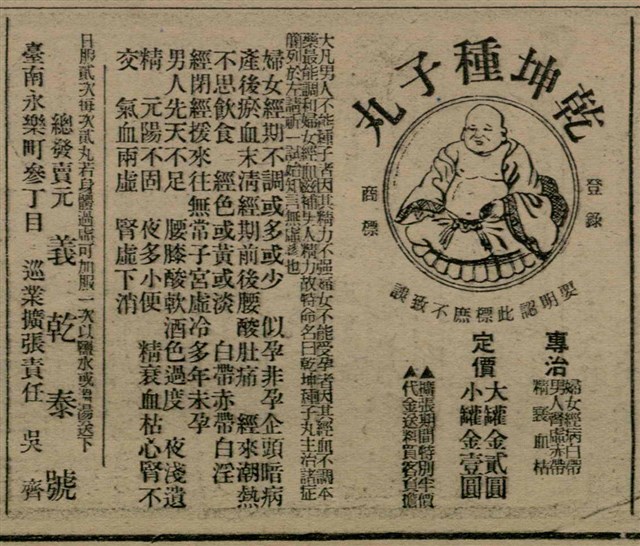 乾坤種子丸
登錄
商標
要明認此標庶不致誤
專治
婦女經病白帶
男人腎虛赤帶
精衰血枯
定價
大罐金貳圓
小罐金壹圓
▲擴張期間特別半價
▲代金送料買客負擔
大凡男人不能種子者因其精力不强婦女不能受孕者因其經血不調本
藥最能調和婦女經血滋補男人精力故特命名曰乾坤種子丸主治諸症
簡列於左請祈一試始知言無虛謬也
婦女經期不調或多或少 似孕非孕企頭暗病
產後瘀血未清經期前後腰酸肚痛 經來潮熱
不思飲食 經色或黃或淡 白帶赤帶白淫
經閉經撥來往無常子宮虛冷多年未孕
男人先天不足 腰膝酸軟酒色過度 夜淺遺
精 元陽不固 夜多小便 精衰血枯心腎不
交 氣血兩虛 腎虛下消
日服貳次每次貳丸若身體過虛可加服一次以鹽水或湯送下
總發賣元 義乾泰號
臺南永樂町參丁目 巡業擴張責任 吳齊